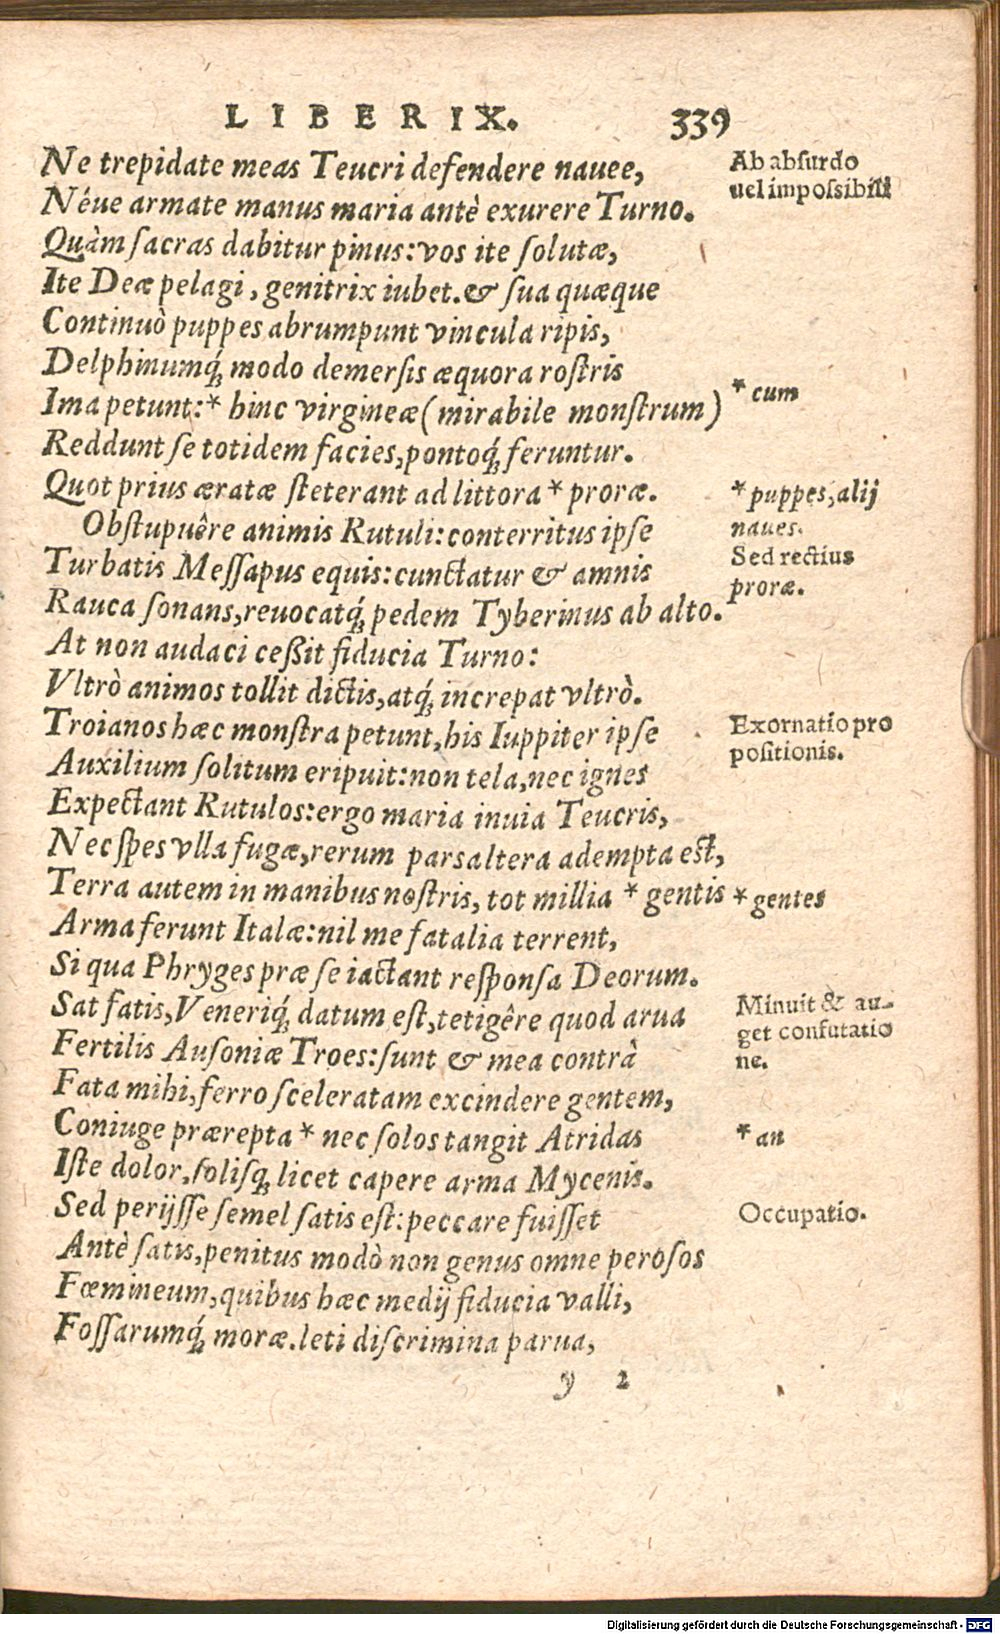 LIBER IX. 339
Ne trepidate meas Teucri defendere nauee,
Néue armate manus maria antè exurere Turno.
Quàm sacras dabitur pinus: vos ite solutæ,
Ite Deæ pelagi, genitrix iubet. & sua quæque
Continuò puppes abrumpunt vincula ripis,
Delphinumq́; modo demersis æquora rostris
Ima petunt:* hinc virgineæ (mirabile monstrum)
Reddunt se totidem facies, pontoq́; feruntur.
Quot prius æratæ steterant ad littora * proræ.
Obstupuêre animis Rutuli: conterritus ipse
Turbatis Messapus equis: cunctatur & amnis
Rauca sonans, reuocatq́; pedem Tyberinus ab alto.
At non audaci ceßit fiducia Turno:
Vltrò animos tollit dictis, atq́; increpat vltrò.
Troianos hæc monstra petunt, his Iuppiter ipse
Auxilium solitum eripuit: non tela, nec ignes
Expectant Rutulos: ergo maria inuia Teucris,
Nec spes vlla fugæ, rerum pars altera adempta est,
Terra autem in manibus nostris, tot millia * gentis
Arma ferunt Italæ: nil me fatalia terrent,
Si qua Phryges præ se iactant responsa Deorum.
Sat fatis, Veneriq́; datum est, tetigêre quod arua
Fertilis Ausoniæ Troes: sunt & mea contrà
Fata mihi, ferro sceleratam excindere gentem,
Coniuge prærepta * nec solos tangit Atridas
Iste dolor, solisq; licet capere arma Mycenis.
Sed perijsse semel satis est: peccare fuisset
Antè satis, penitus modò non genus omne perosos
Fœmineum, quibus hæc medij fiducia valli,
Fossarumq́; moræ. leti discrimina parua,
y 2
Ab absurdo
uel impossibili
* cum
* puppes, alij
naues.
Sed rectius
proræ.
Exornatio pro
positionis.
* gentes
Minuit & au-
get confutatio
ne.
* an
Occupatio.
Digitalisierung gefördert durch die Deutsche Forschungsgemeinschaft - DFG